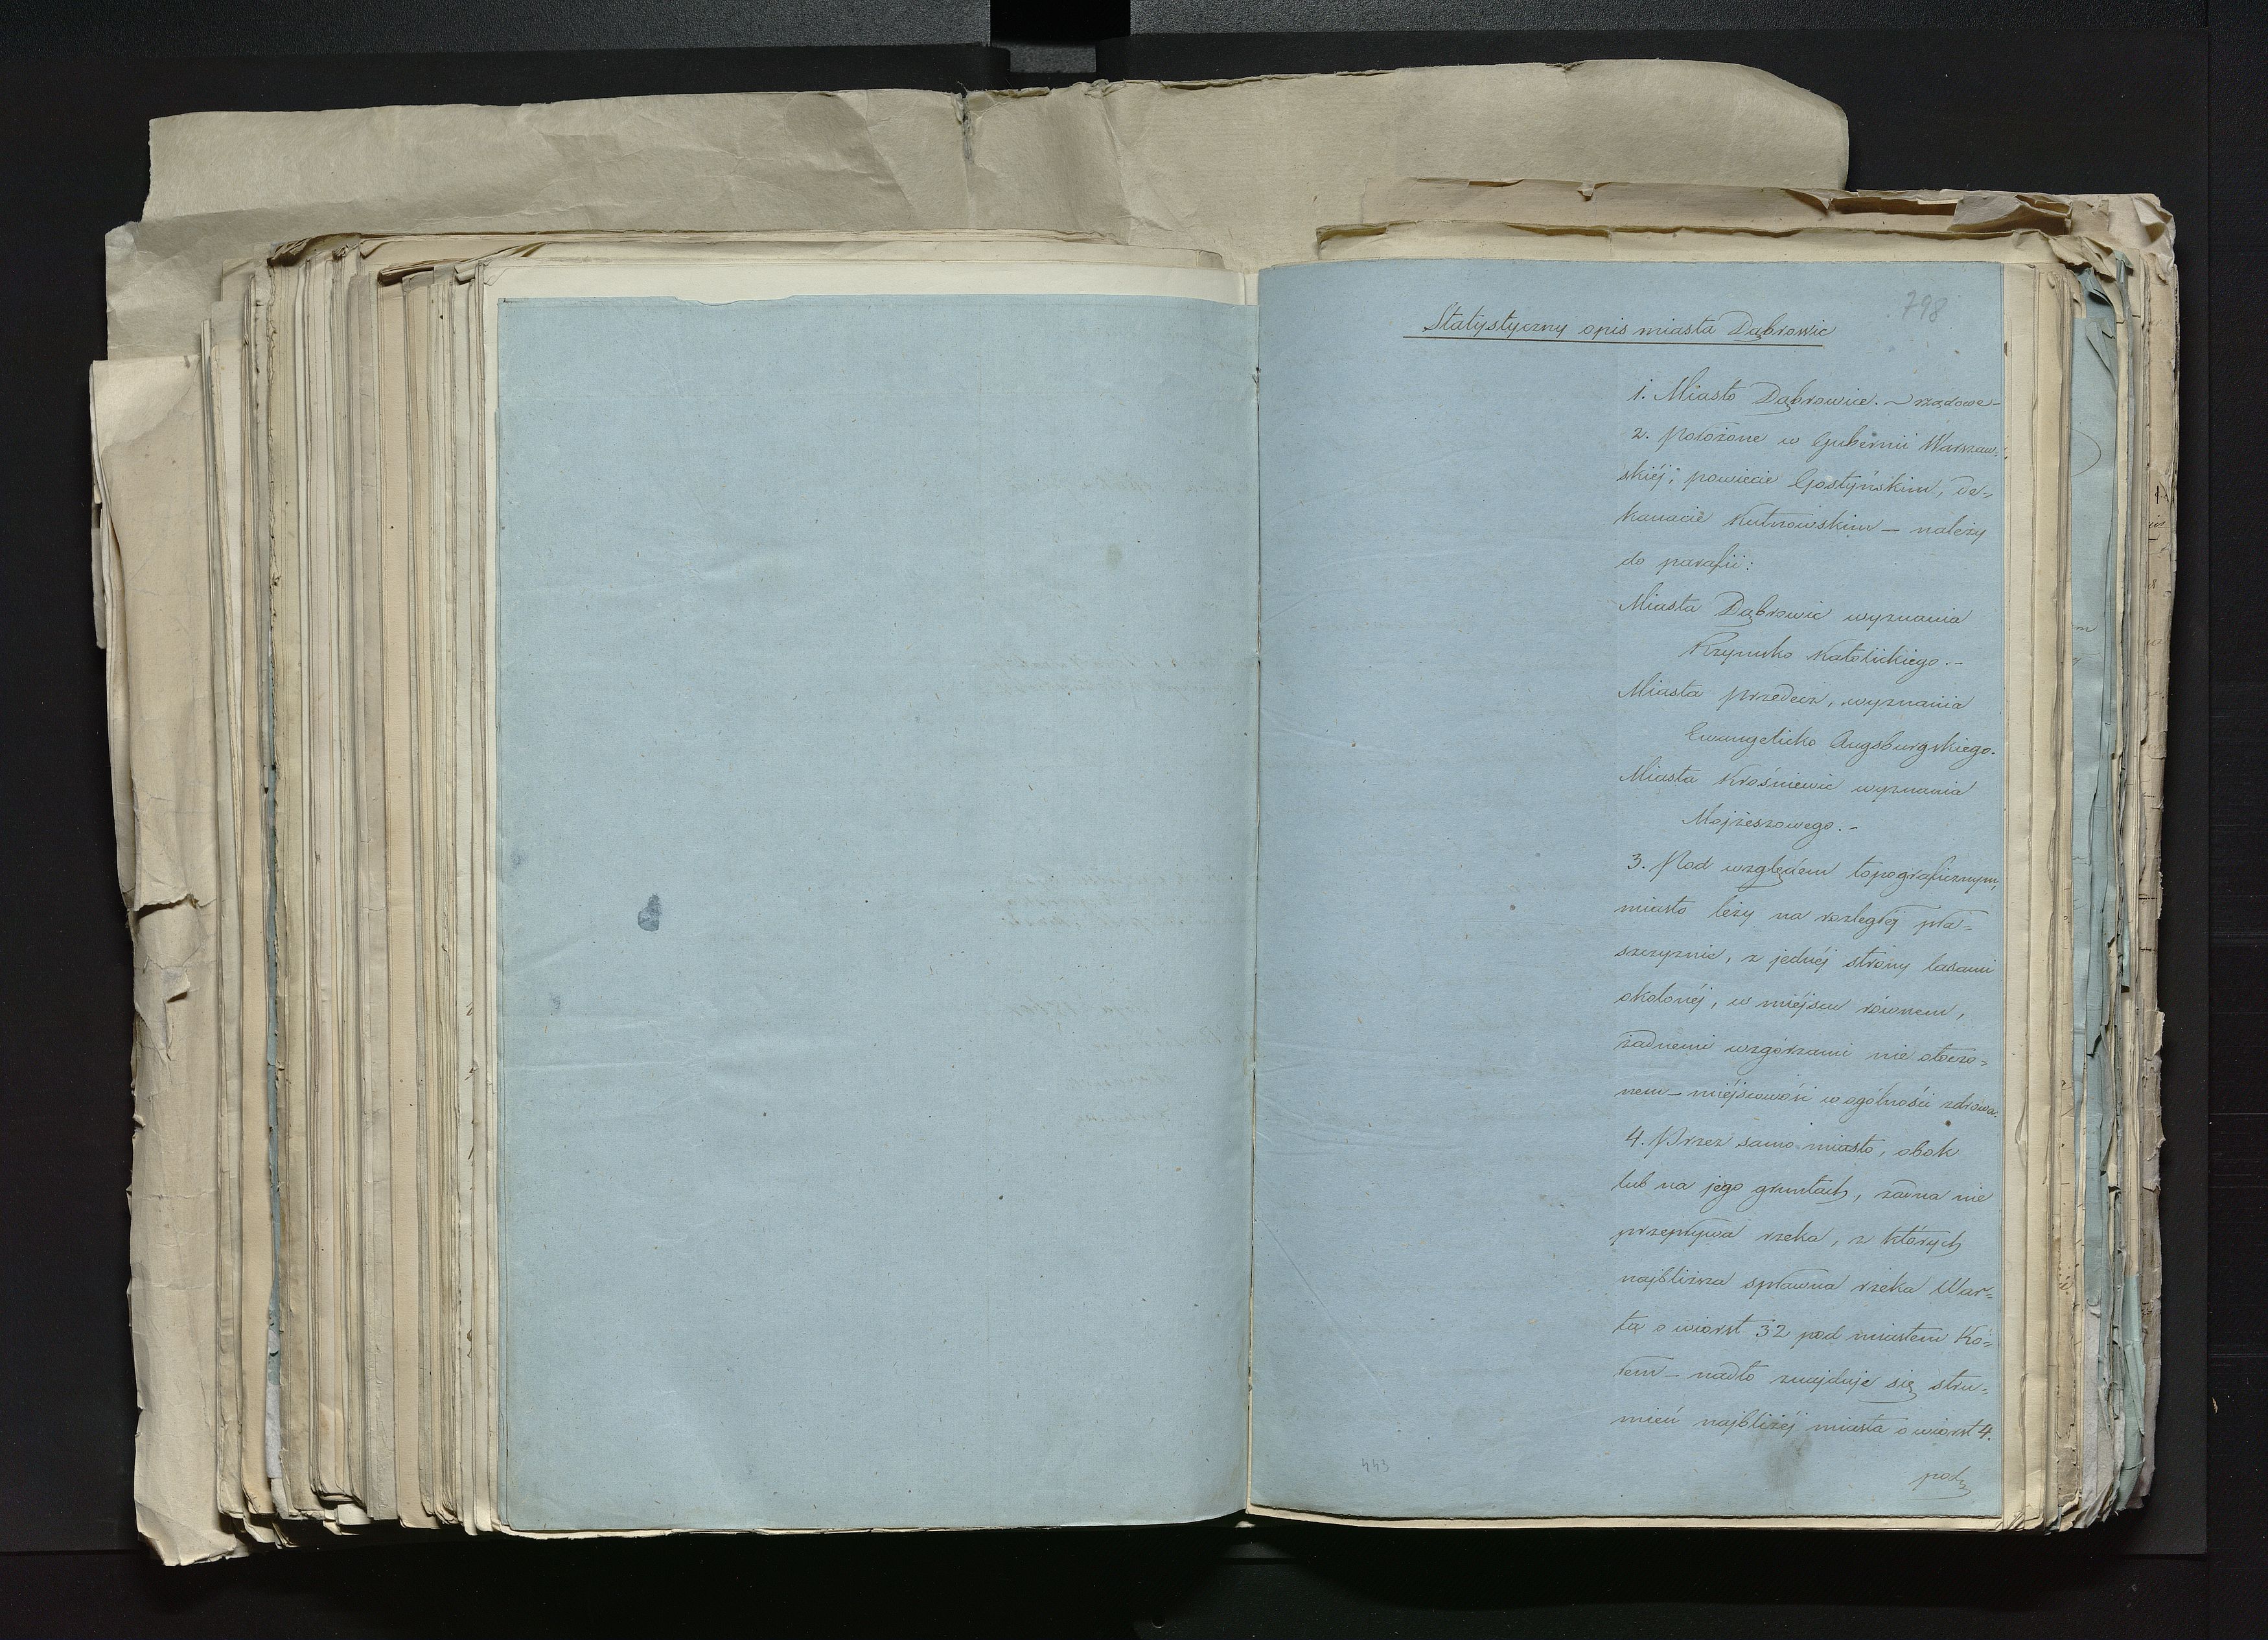 798
Statystyczny opis miasta Dąbrowic
1. Miasto Dąbrowice. – rządowe –
2. Położone w Gubernii Warszaw-
skiéj, powiecie Gostyńskim, de-
kanacie Kutnowskim – należy
do parafii:
Miasta Dąbrowic wyznania
Rzymsko Katolickiego. –
Miasta Przedecz, wyznania
Ewangelicko Augsburgskiego.
Miasta Krośniewic wyznania
Mojżeszowego. –
3. Pod względem topograficznym,
miasto leży na rozległéj pła=
szczyznie, z jednéj strony lasami
okolonéj, w miéjscu równem,
żadnemi wzgórzami nie otoczo=
nem – miéjscowość w ogólności zdrowa.
4. Przez samo miasto, obok
lub na jego gruntach, żadna nie
przepływa rzeka, z których
najbliższa spławna rzeka War=
ta o wiorst 32 pod miastem Ko=
łem – nadto znajduje się stru=
mień najbliżéj miasta o wiorst 4.
pod
443